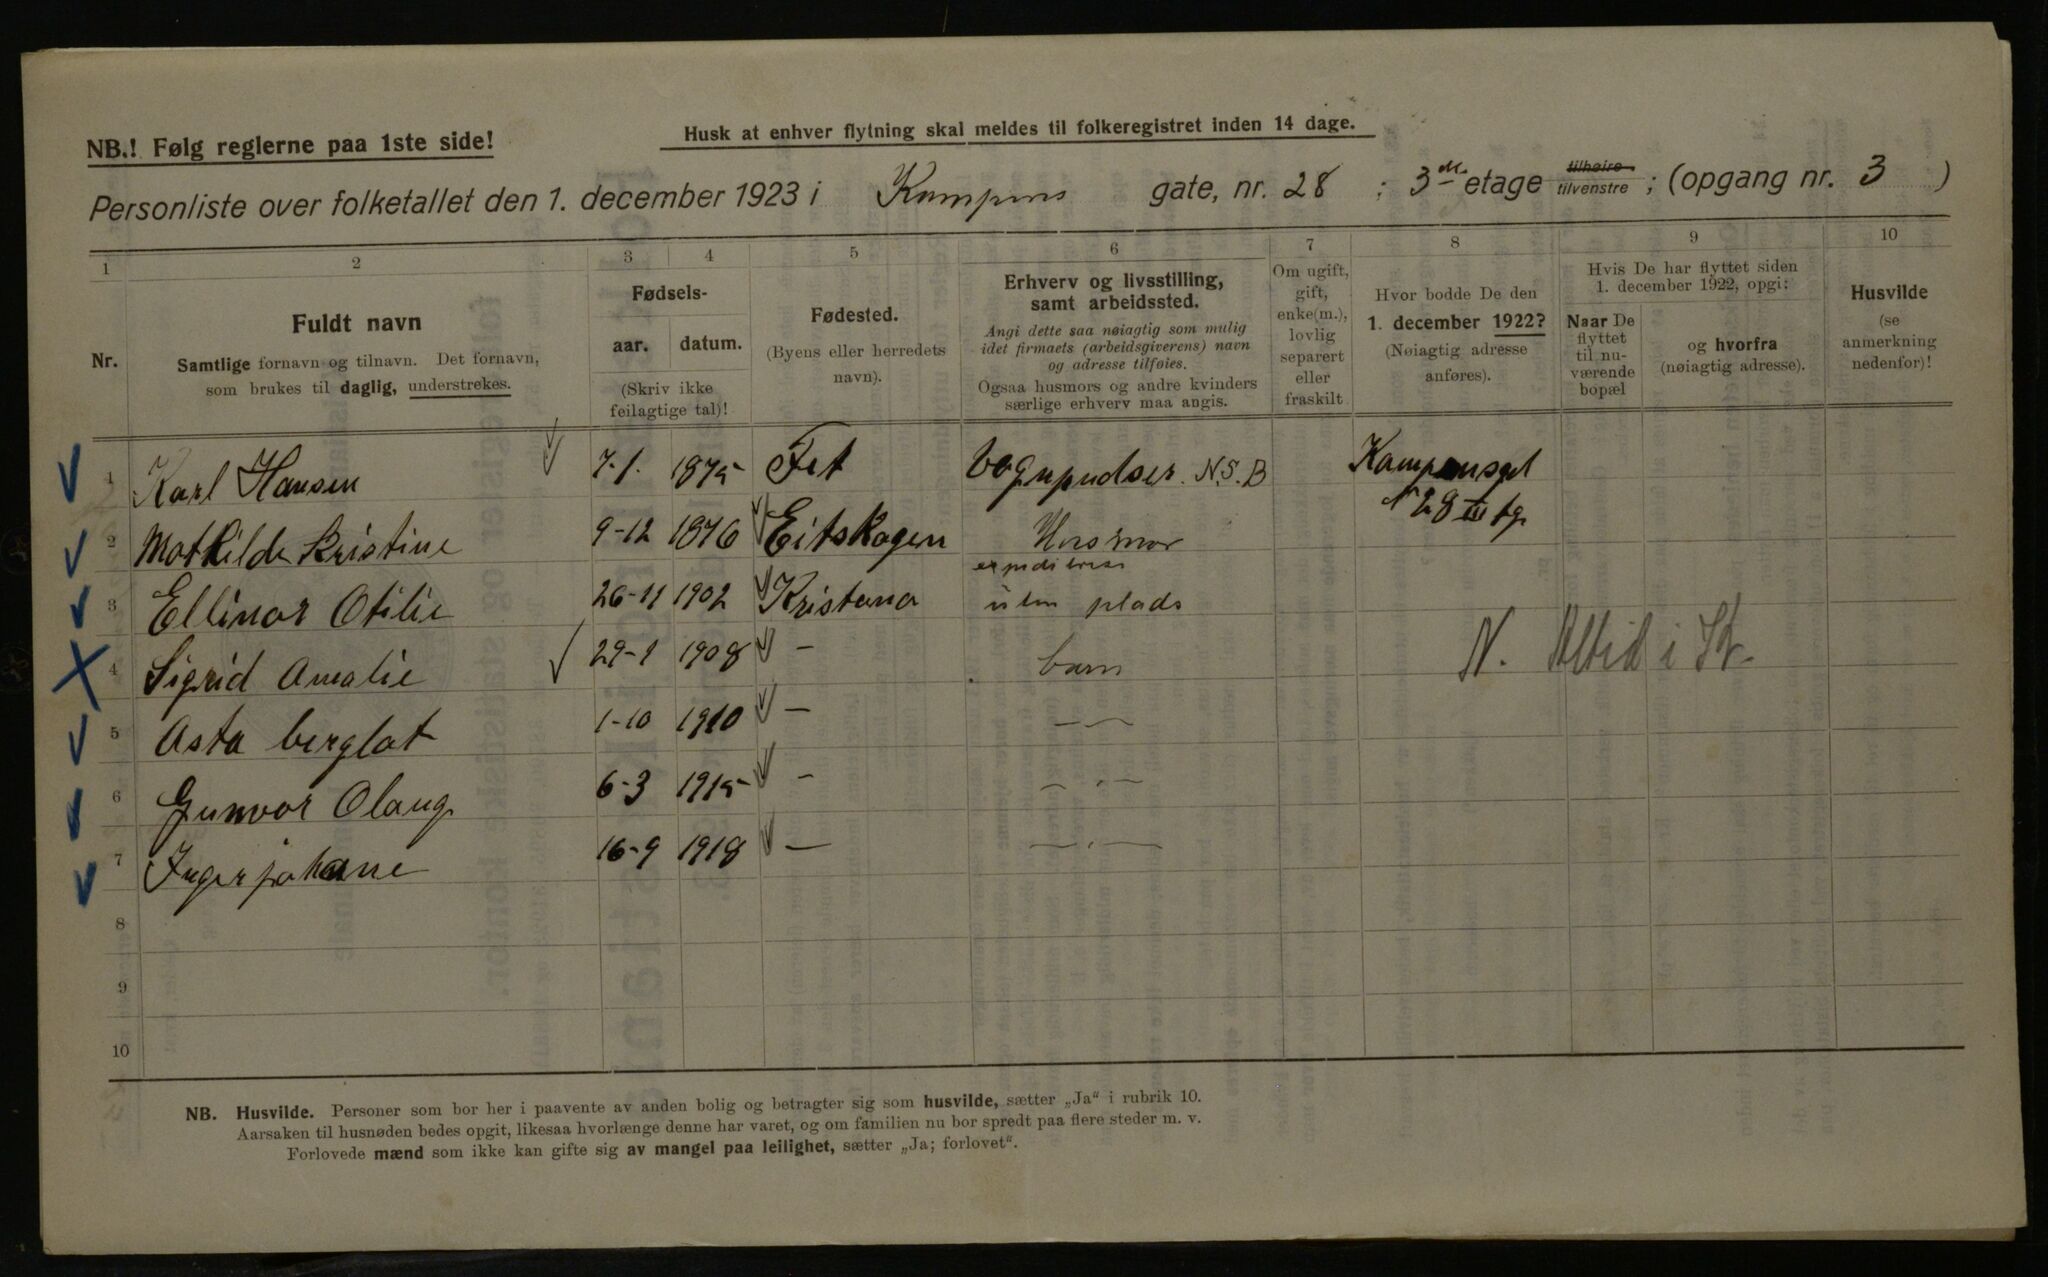 Husk at enhver flytning skal meldes til folkeregistret inden 14 dage.
NB.! Følg reglerne paa 1ste side!
Personliste over folketallet den 1. december 1923 i Kampens gate, nr. 28 ; 3die etage tilhøire tilvenstre ; (opgang nr. 3 )
1 2 3 4 5 6 7 8 9 10
Nr.
Fuldt navn
Samtlige fornavn og tilnavn. Det fornavn,
som brukes til daglig, understrekes.
Fødsels-
aar. datum.
(Skriv ikke
feilagtige tal)!
Fødested.
(Byens eller herredets
navn).
Erhverv og livsstilling,
samt arbeidssted.
Angi dette saa nøiagtig som mulig
idet firmaets (arbeidsgiverens) navn
og adresse tilføies.
Ogsaa husmors og andre kvinders
særlige erhverv maa angis.
Om ugift,
gift,
enke(m.),
lovlig
separert
eller
fraskilt
Hvor bodde De den
1. december 1922?
(Nøiagtig adresse
anføres).
Hvis De har flyttet siden
1. december 1922, opgi:
Naar De
flyttet
til nu-
værende
bopæl
og hvorfra
(nøiagtig adresse).
Husvilde
(se
anmerkning
nedenfor)!
1 Karl Hansen 7-1. 1875 Fet Vognpudser N.S.B Kampensgt
N 28 III tg
2 Mathilde Kristine 9-12 1876 Eitskogen Husmor
3 Ellinor Otilie 26-11 1902 Kristana
uten plads
4 Sigrid Amalie 29-1 1908 — barn N. Altid i Kr.
5 Asta berglot 1-10 1910 — —
6 Gunvor Olaug 6-3 1915 — —
7 Inger johane 16-9 1918 — —
8
9
10
NB. Husvilde. Personer som bor her i paavente av anden bolig og betragter sig som husvilde, sætter „Ja“ i rubrik 10.
Aarsaken til husnøden bedes opgit, likesaa hvorlænge denne har varet, og om familien nu bor spredt paa flere steder m. v.
Forlovede mænd som ikke kan gifte sig av mangel paa leilighet, sætter „Ja; forlovet“.